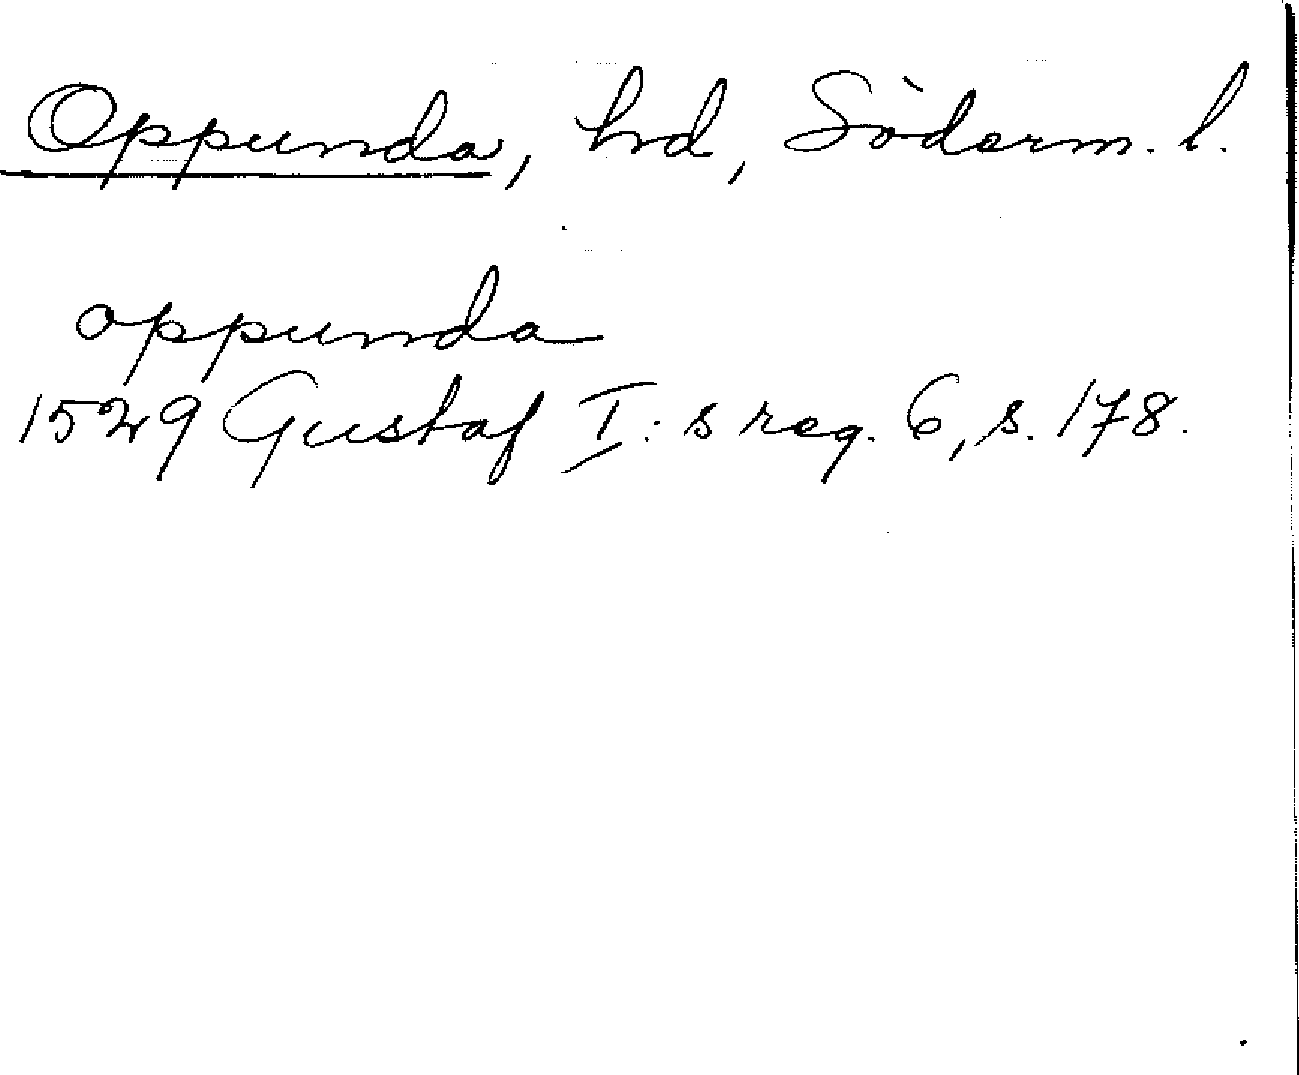 Oppunda, hd, Söderm. l.
oppunda
1529 Gustaf I:s reg. 6, s. 178.